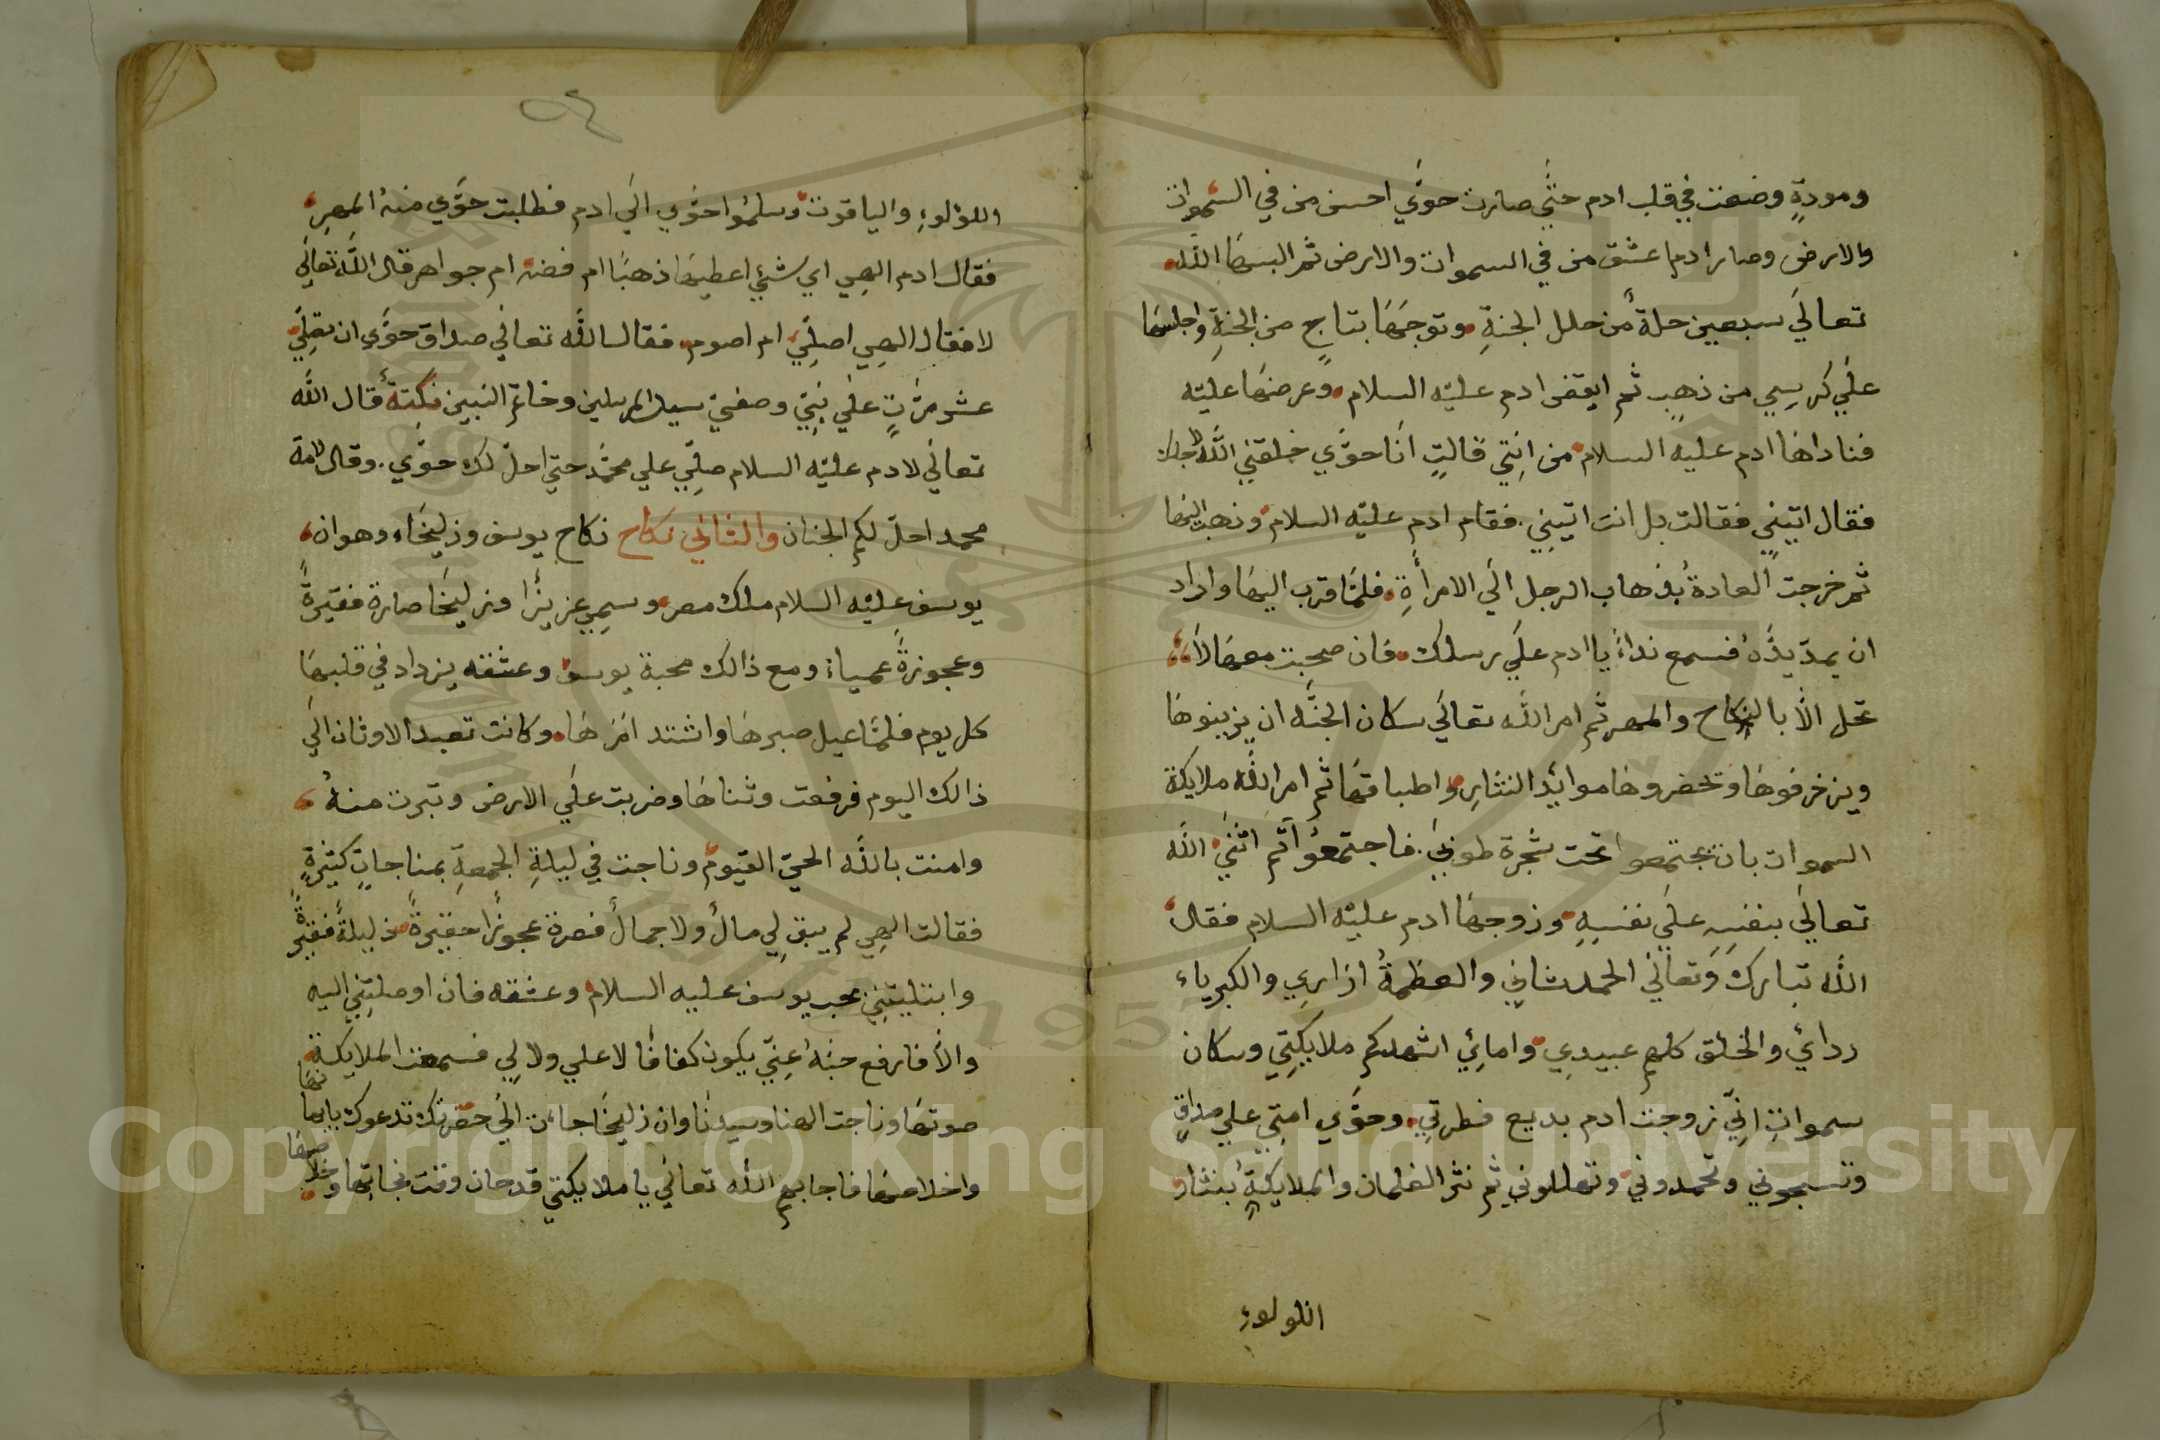 ومودةٍ وضعت في قلب ادم حتٰي صارت حوّٰي احسن من في السٰموات
والارض وصار ادم اعشق من في السموات والارض ثم البسهَا اللّٰه
تعالَي سبعين حلةً من حلل الجنةِ وتوجهَا بتاجٍ من الجنةِ واجلسهَا
علَي كرسِي من ذهبٍ ثم ايقض ادم عليْه السلام وعرضهَا عليْه
فناداهَا ادم عليْهِ السلام من انِتي قالتِ انَا حوّٰي خلقنِي اللّٰه لاجلك
فقال اتيْنِي فقالت بل انت اتيْنِي فقام ادم عليْه السلام وذهب اليهَا
ثم خرجت العادةُ بذهاب الرجل الَي الامرأَةِ فلمّا قرب اليهَا واراد
ان يمدّ يدَهُ فسمع نداءً يا ادم علَي رسلك فان صحبت معهَا لَا
تحل الّا بالنكاح والمهر ثم امر اللّٰه تعالَي سكان الجنّه ان يزينوهَا
ويزخرفوهَا وتحضروهَا موايْد النثارِ واطباقهَا ثم امر اللّٰه ملايكة
السموات بان يجتمعوا تحت شجرة طوبَي فاجتمعُوا ثم اثنَي اللّٰه
تعالَي بنفسِهِ علَي نفسِهِ وزوجهَا ادم عليْه السلام فقال
اللّٰه تبارك وَتعالَي الحمد شانِي والعظمةُ ازارِي والكبرياء
ردائي والخلق كلهم عبيدِي وامائِي اشهدكم ملايكتِي وسكان
سمواتِ انِيّ زوجت ادم بديع فطرتِي وحوّٰي امتِي علي صداقٍ
وتسبحونِي وتحمدونِي وتهللونِي ثم نثر الغلمان والملايكةُ بنثار
اللولوءِ
اللؤلوءِ والياقوت وسلمُوا حوّٰي الَي ادم فطلبت حوّٰي منهُ المهرِ
فقال ادم الهِي اي شئٍ اعطيهَا ذهبًا ام فضةٍ ام جواهر قال اللّٰه تعالَي
لا فقال الهِي اصلِّي ام اصوم فقال اللّٰه تعالَي صداق حوّٰي ان تصلِّي
عشر مرّٰتٍ علَي نبيّي وصفيّي سيد المرسلين وخاتم النبيين نكتةٌ قال اللّٰه
تعالَي لادم عليْه السلام صلِّي علي محمّد حتي احلّ لك حوّٰي وقال لامة
محمد احلّ لكم الجنان والثاني نكاح نكاح يوسف وزليخَاء وهو ان
يوسف عليْه السلام ملك مصر وسمِي عزيزًا وزليخَا صارة فقيرةً
وعجوزةً عمياء ومع ذالك محبة يوسف وعشقه يزداد في قلبهَا
كل يوم فلمّا عيل صبرهَا واشتد امَرهَا وكانت تعبد الاوثان الَي
ذالك اليوم فرفعت وثناهَا وضربت علَي الارض وتبرت منهُ
وامنت باللّٰه الحيّ القيّوم وناجت في ليلةِ الجمعةِ بمناجاتٍ كثيرةٍ
فقالت الهِي لم يبق لِي مالٌ ولا جمالٌ فصرة عجوزًا حقيرةً ذليلةً فقيرةً
وابتليتنِي بحب يوسف عليه السلام وعشقه فان اوصلتِنِي اليه
والّا فارفع حبّهُ عنِيّ يكون كفافًا لا علي ولا لِي فسمعت الملايكة
صوتهَا وناجت الهنا وسيدنَا وان زليخَا جاءت الَي حضرتك تدعوك بايمانهَا
واخلاصهَا فاجابهم اللّٰه تعالَي يا ملايكتي قد حان وقت نجاتهَا وخلاصهَا